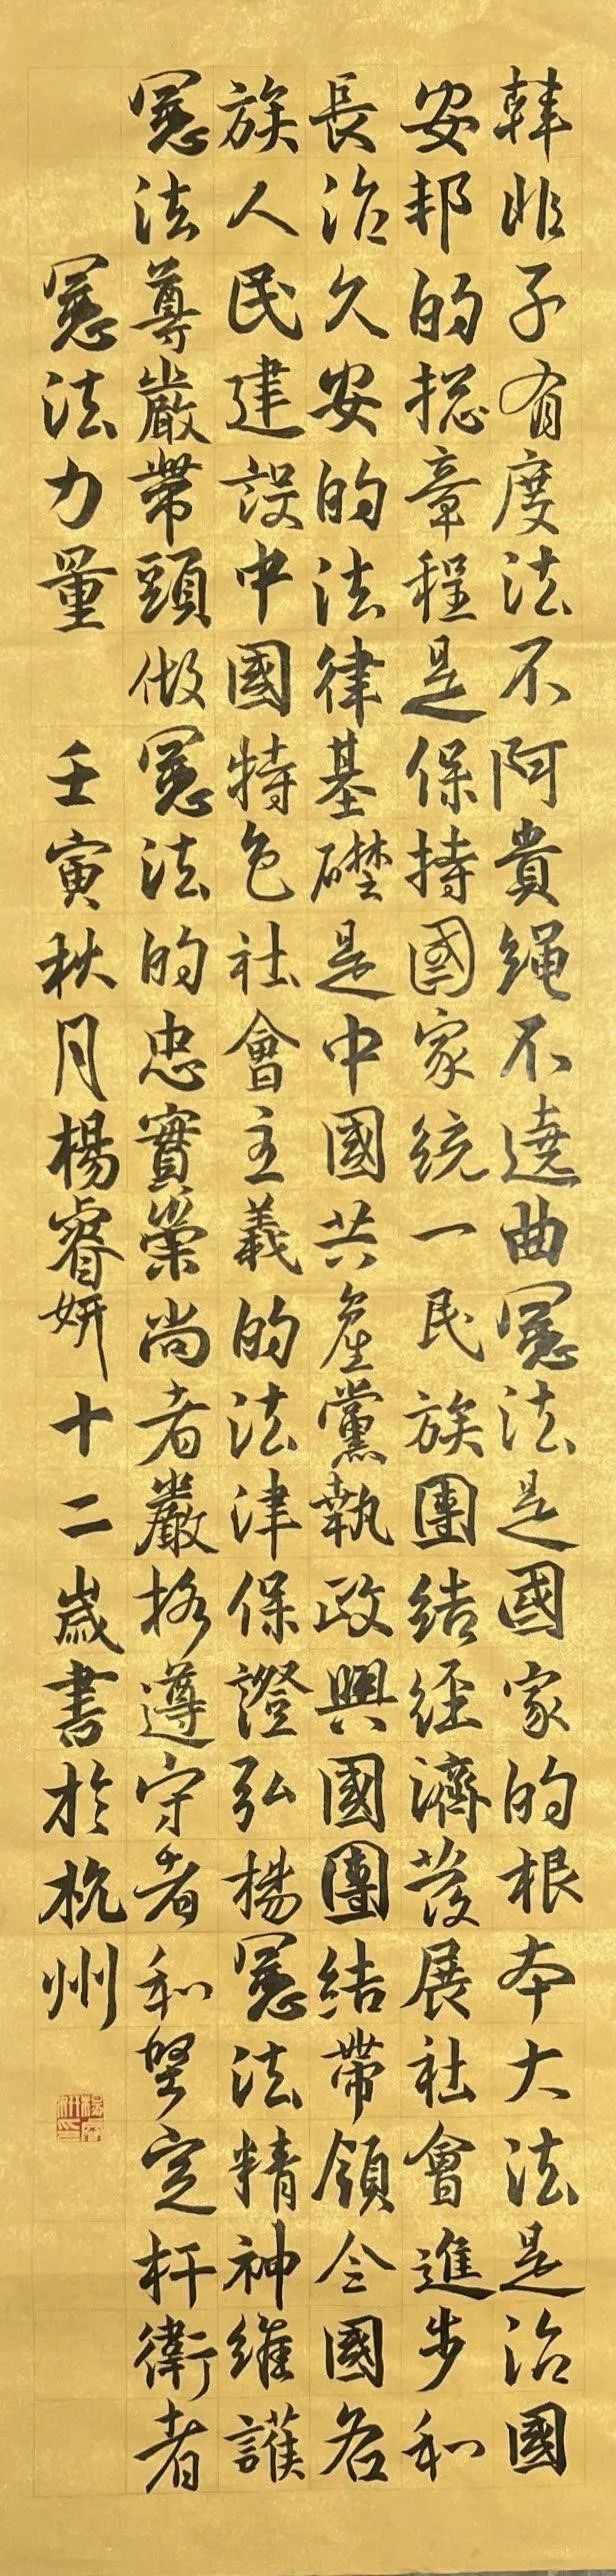 韓非子有度法不阿貴繩不遶曲憲法是國家的根本大法是治國
安邦的揔章程是保持國家統一民族團结経濟發展社會進步和
長治久安的法律基礎是中國共產黨執政興國團结帶領全國各
族人民建設中國特色社會主義的法津保證弘楊憲法精神維護
憲法尊嚴帶頭做憲法的忠實崇尚者嚴格遵守者和堅定杆衛者
憲法力量
壬寅秋月楊睿妍十二歲書於杭州